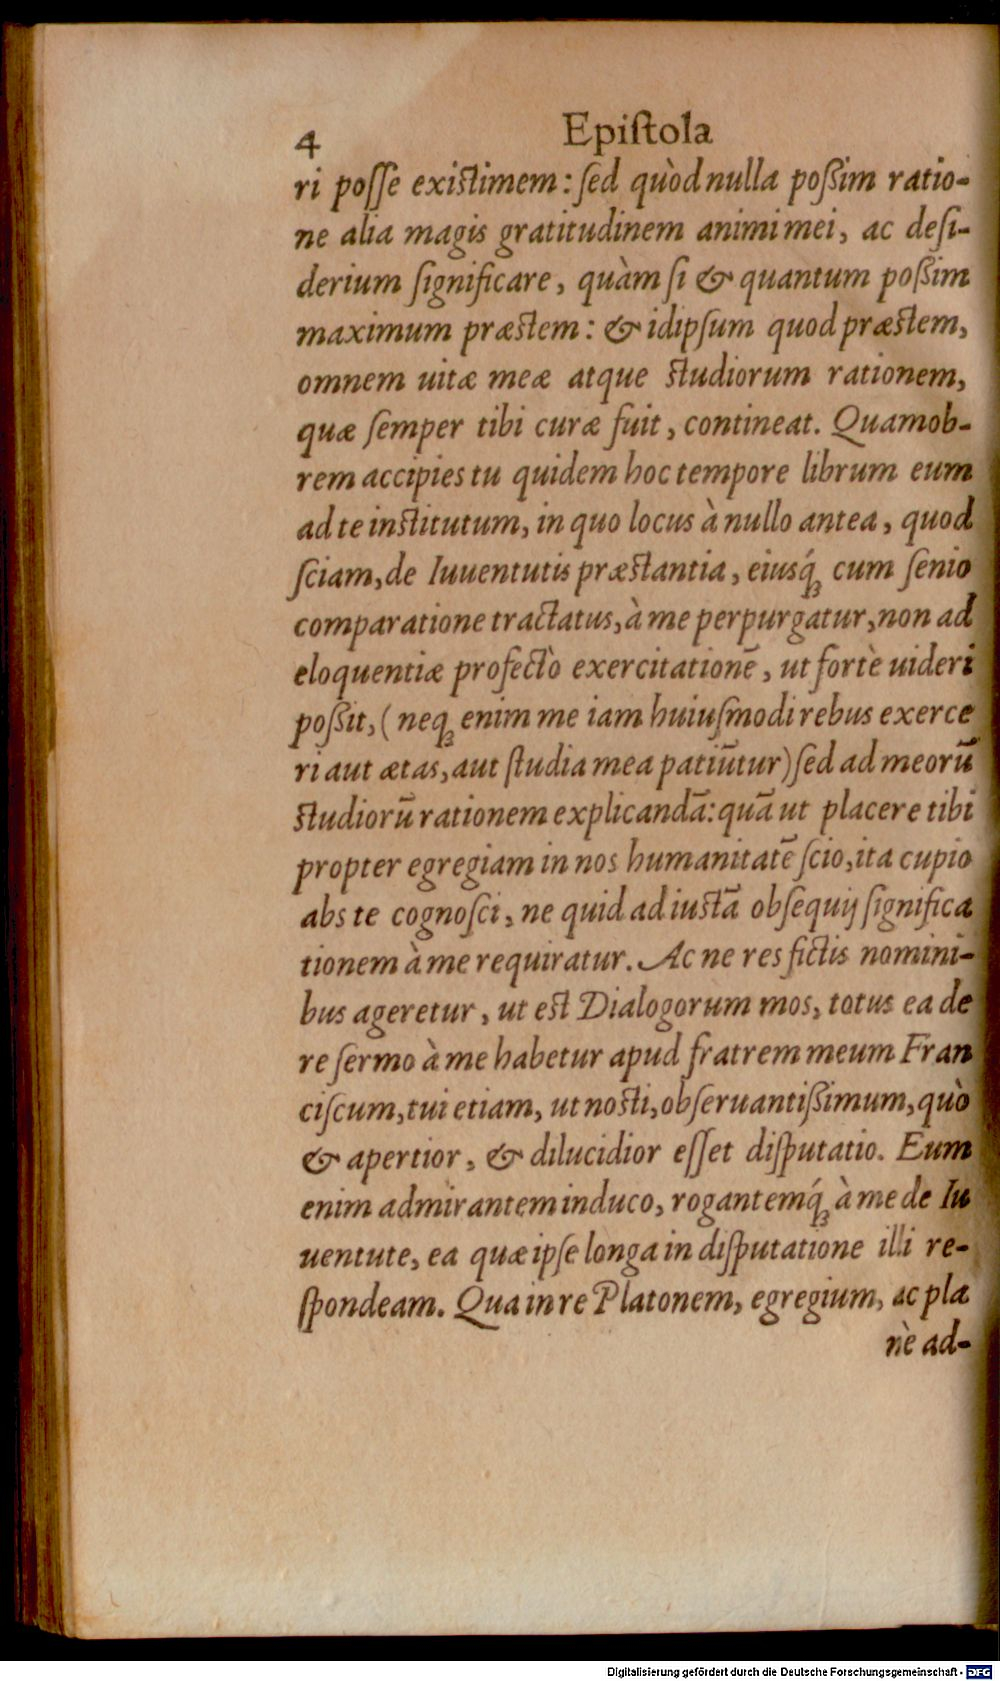 4 Epiſtola
ri poſſe exiſtimem: ſed quòd nulla poßim ratio-
ne alia magis gratitudinem animi mei, ac deſi-
derium ſignificare, quàm ſi & quantum poßim
maximum præſtem: & idipſum quod præſtem,
omnem uitæ meæ atque ſtudiorum rationem,
quæ ſemper tibi curæ fuit, contineat. Quamob-
rem accipies tu quidem hoc tempore librum eum
ad te inſtitutum, in quo locus à nullo antea, quod
ſciam, de Iuuentutis præſtantia, eiusq́ꝫ cum ſenio
comparatione tractatus, à me perpurgatur, non ad
eloquentiæ profectò exercitationē, ut fortè uideri
poßit, (neqꝫ enim me iam huiuſmodi rebus exerce
ri aut ætas, aut ſtudia mea patiūtur) ſed ad meorū
ſtudiorū rationem explicandā: quā ut placere tibi
propter egregiam in nos humanitatē ſcio, ita cupio
abs te cognoſci, ne quid ad iuſtā obſequij ſignifica
tionem à me requiratur. Ac ne res fictis nomini-
bus ageretur, ut eſt Dialogorum mos, totus ea de
re ſermo à me habetur apud fratrem meum Fran
ciſcum, tui etiam, ut noſti, obſeruantißimum, quò
& apertior, & dilucidior eſſet diſputatio. Eum
enim admirantem induco, rogantemq́ꝫ à me de Iu
uentute, ea quæ ipſe longa in diſputatione illi re-
ſpondeam. Qua in re Platonem, egregium, ac pla
nè ad-
Digitalisierung gefördert durch die Deutsche Forschungsgemeinschaft - DFG